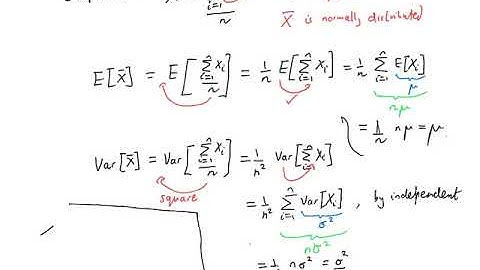 Σ i=1 n
n
X̄ is normally distributed
E[X̄] = E[ Σ i=1 n Xi / n ] = 1/n E[ Σ i=1 n Xi ] = 1/n Σ i=1 n E[Xi]
μ
nμ
= 1/n nμ = μ
Var[X̄] = Var[ Σ i=1 n Xi / n ] = 1/n² Var[ Σ i=1 n Xi ]
square
= 1/n² Σ i=1 n Var[Xi] , by independent
σ²
nσ²
= 1/ nσ² = σ²